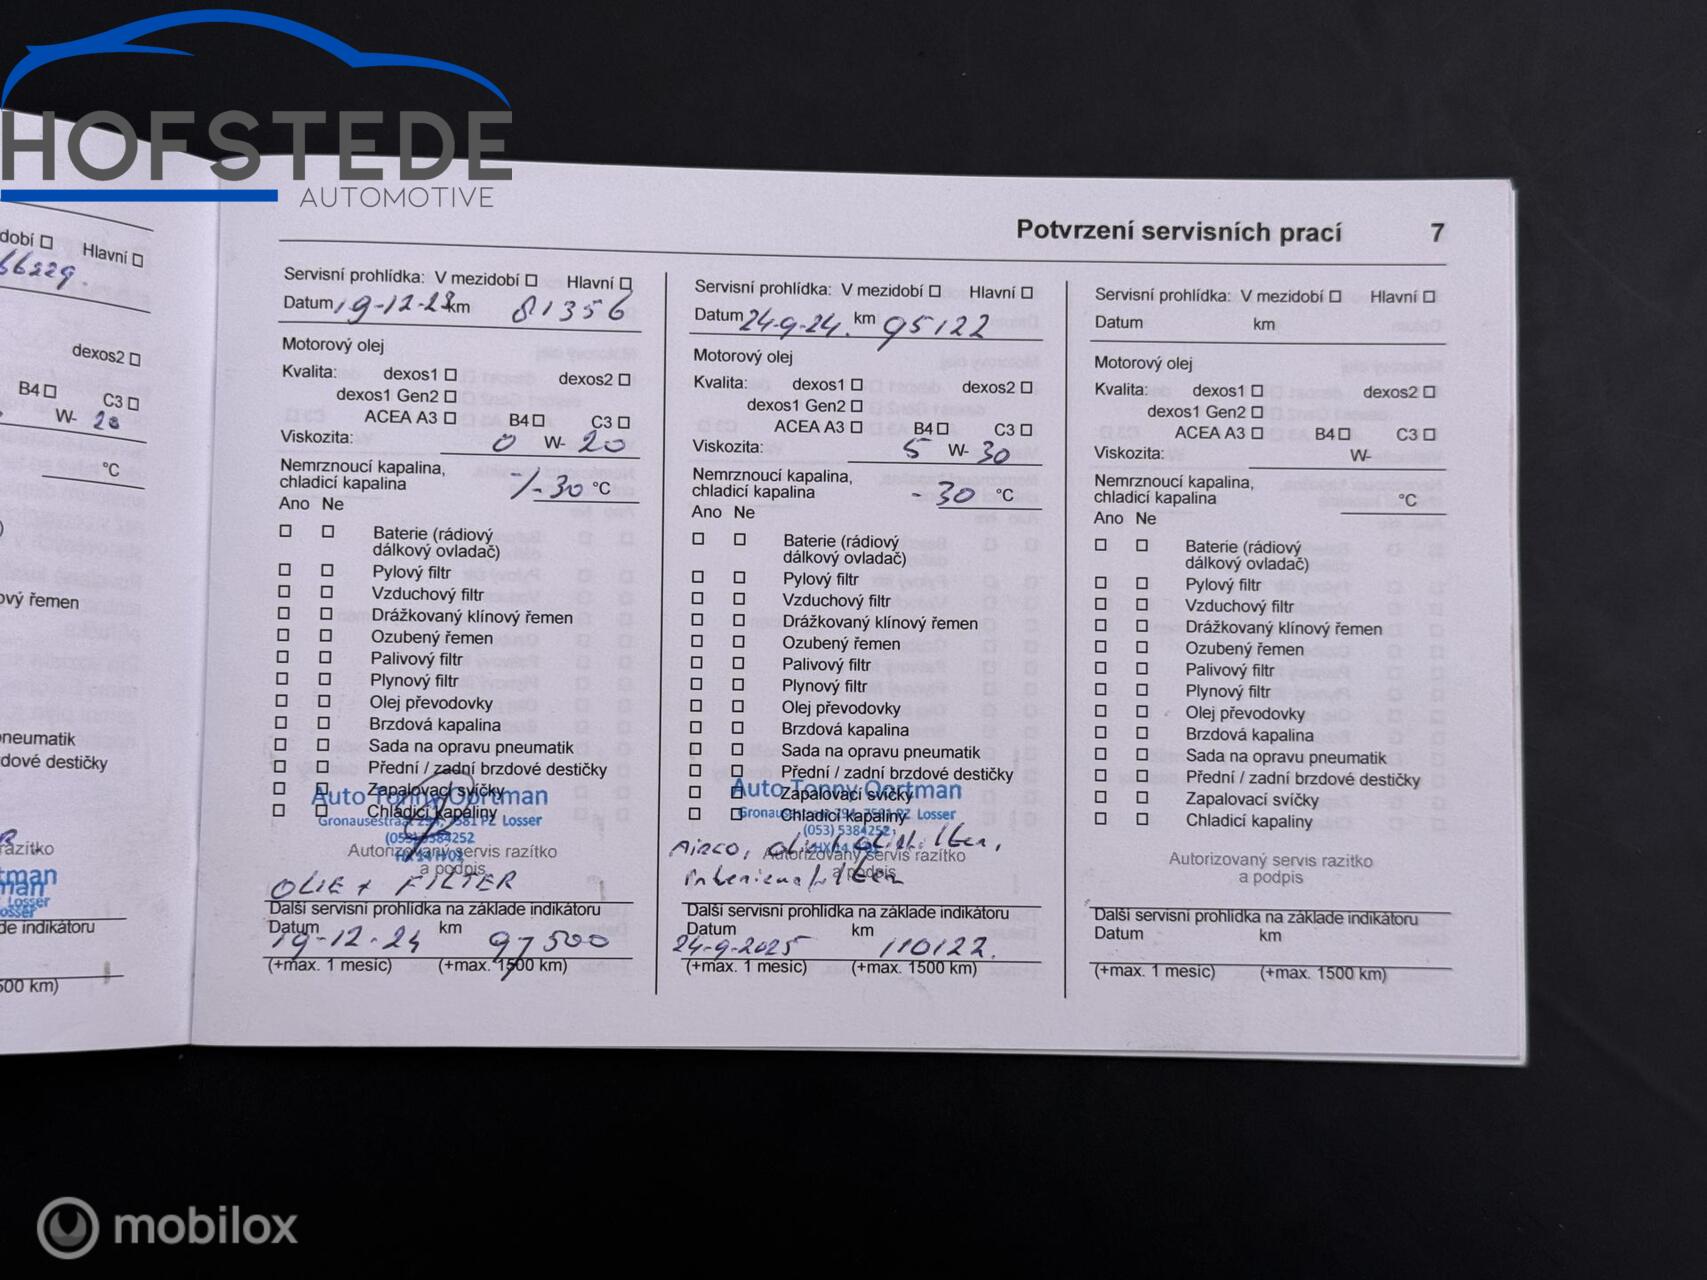 HOFSTEDE
AUTOMOTIVE
Potvrzení servisních prací 7
dobí Hlavní
66229.
dexos2
B4 C3
W- 20
°C
ový řemen
neumatik
zdové destičky
razítko
tman
Losser
de indikátoru
500 km)
Servisní prohlídka: V mezidobí Hlavní
Datum 19-12-23 km 81356
Motorový olej
Kvalita: dexos1 dexos2
dexos1 Gen2
ACEA A3 B4 C3
Viskozita: 0 W- 20
Nemrznoucí kapalina,
chladicí kapalina -/-30 °C
Ano Ne
Baterie (rádiový
dálkový ovladač)
Pylový filtr
Vzduchový filtr
Drážkovaný klínový řemen
Ozubený řemen
Palivový filtr
Plynový filtr
Olej převodovky
Brzdová kapalina
Sada na opravu pneumatik
Přední / zadní brzdové destičky
Zapalovací svíčky
Auto Tonny Oortman
Chladicí kapaliny
Gronausestraat 294, 7581 PZ Losser
(053) 5384252
Autorizovaný servis razítko
a podpis
OLIE + FILTER
Další servisní prohlídka na základe indikátoru
Datum km
19-12-24 97500
(+max. 1 mesic) (+max. 1500 km)
Servisní prohlídka: V mezidobí Hlavní
Datum 24-9-24. km 95122
Motorový olej
Kvalita: dexos1 dexos2
dexos1 Gen2
ACEA A3 B4 C3
Viskozita: 5 W- 30
Nemrznoucí kapalina,
chladicí kapalina -30 °C
Ano Ne
Baterie (rádiový
dálkový ovladač)
Pylový filtr
Vzduchový filtr
Drážkovaný klínový řemen
Ozubený řemen
Palivový filtr
Plynový filtr
Olej převodovky
Brzdová kapalina
Sada na opravu pneumatik
Přední / zadní brzdové destičky
Auto Tonny Oortman
Zapalovací svíčky
Gronausestraat 294, 7581 PZ Losser
Chladicí kapaliny
(053) 5384252
Airco,
Autorizovaný servis razítko
a podpis
Další servisní prohlídka na základe indikátoru
Datum km
24-9-2025 110122.
(+max. 1 mesic) (+max. 1500 km)
Servisní prohlídka: V mezidobí Hlavní
Datum km
Motorový olej
Kvalita: dexos1 dexos2
dexos1 Gen2
ACEA A3 B4 C3
Viskozita: W-
Nemrznoucí kapalina,
chladicí kapalina °C
Ano Ne
Baterie (rádiový
dálkový ovladač)
Pylový filtr
Vzduchový filtr
Drážkovaný klínový řemen
Ozubený řemen
Palivový filtr
Plynový filtr
Olej převodovky
Brzdová kapalina
Sada na opravu pneumatik
Přední / zadní brzdové destičky
Zapalovací svíčky
Chladicí kapaliny
Autorizovaný servis razítko
a podpis
Další servisní prohlídka na základe indikátoru
Datum km
(+max. 1 mesic) (+max. 1500 km)
mobilox